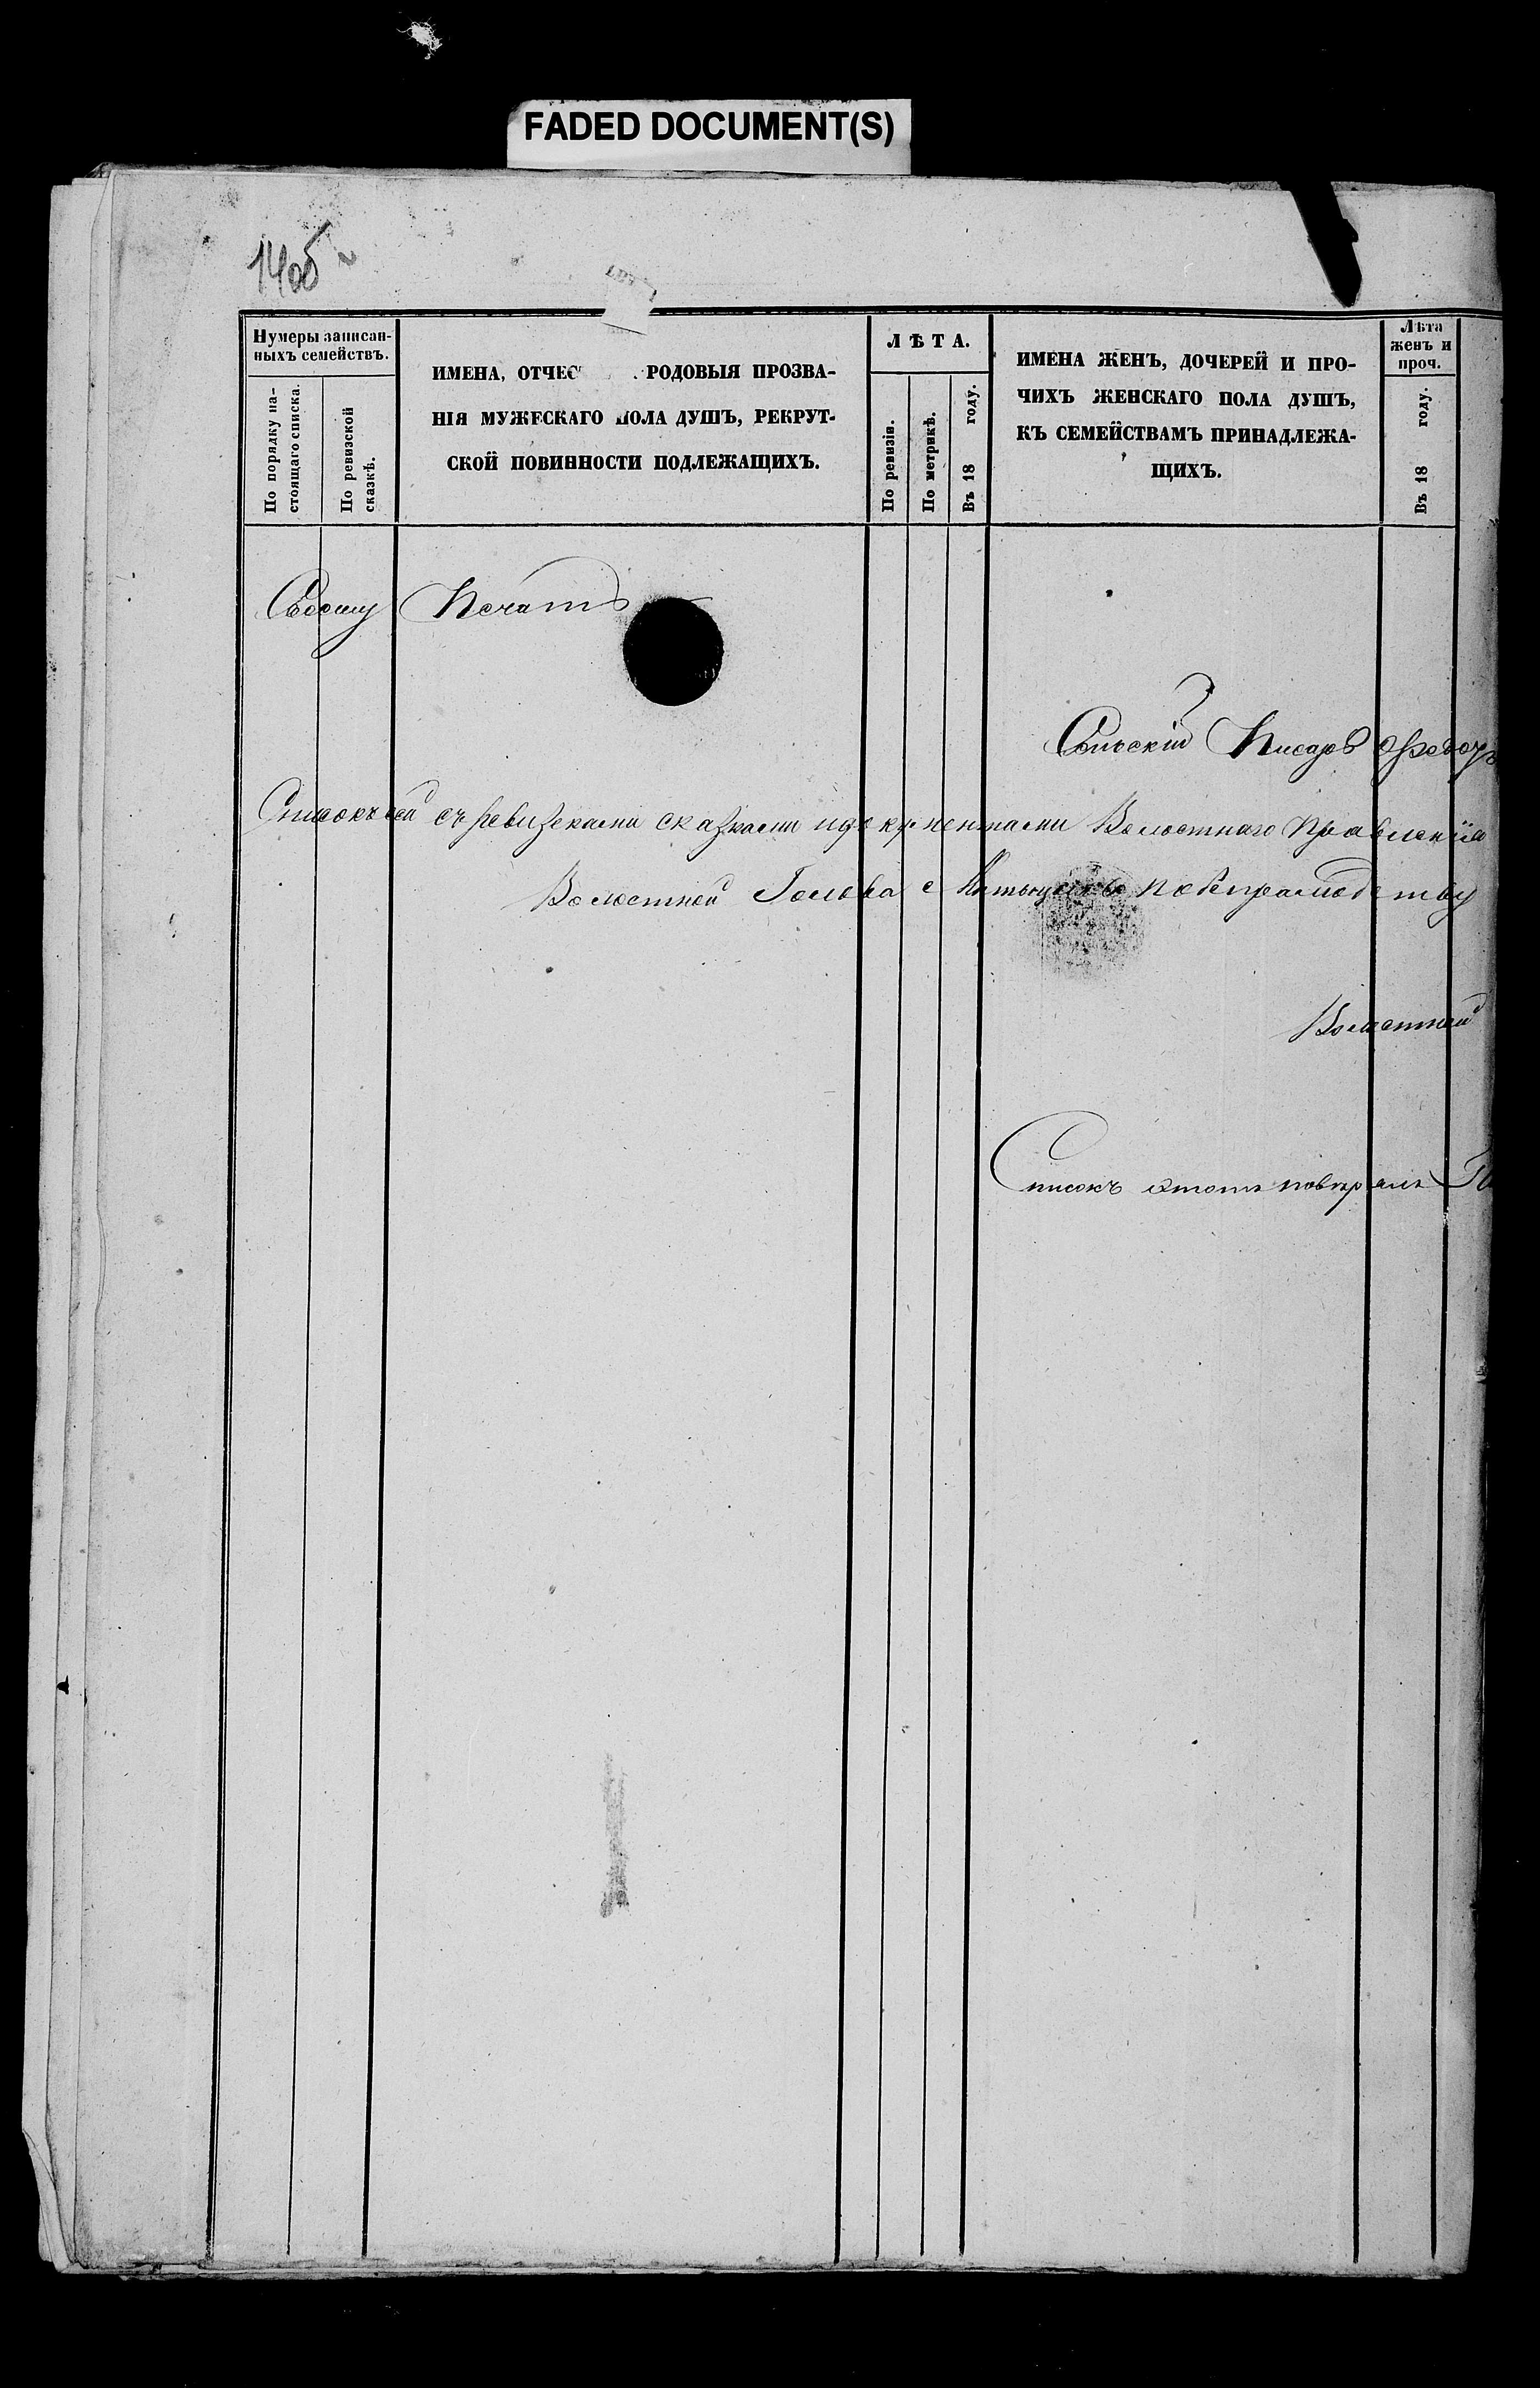 FADED DOCUMENT(S)
14об
Нумеры записан-
ныхъ семействъ.
По порядку на-
стоящаго списка.
По ревизской
сказкѣ.
ИМЕНА, ОТЧЕС РОДОВЫЯ ПРОЗВА-
НІЯ МУЖЕСКАГО ПОЛА ДУШЪ, РЕКРУТ-
СКОЙ ПОВИННОСТИ ПОДЛЕЖАЩИХЪ.
ЛѢТА.
По ревизіи.
По метрикѣ.
Въ 18 году.
ИМЕНА ЖЕНЪ, ДОЧЕРЕЙ И ПРО-
ЧИХЪ ЖЕНСКАГО ПОЛА ДУШЪ,
КЪ СЕМЕЙСТВАМЪ ПРИНАДЛЕЖА-
ЩИХЪ.
Лѣта
женъ и
проч.
Въ 18 году.
Своему Печать
Сельскій Писарь Федоръ
Списокъ сей съ ревизсками сказками и документами Волостнаго Правленія
Волостной Голова
Волостной
Списокъ этотъ повѣрялъ